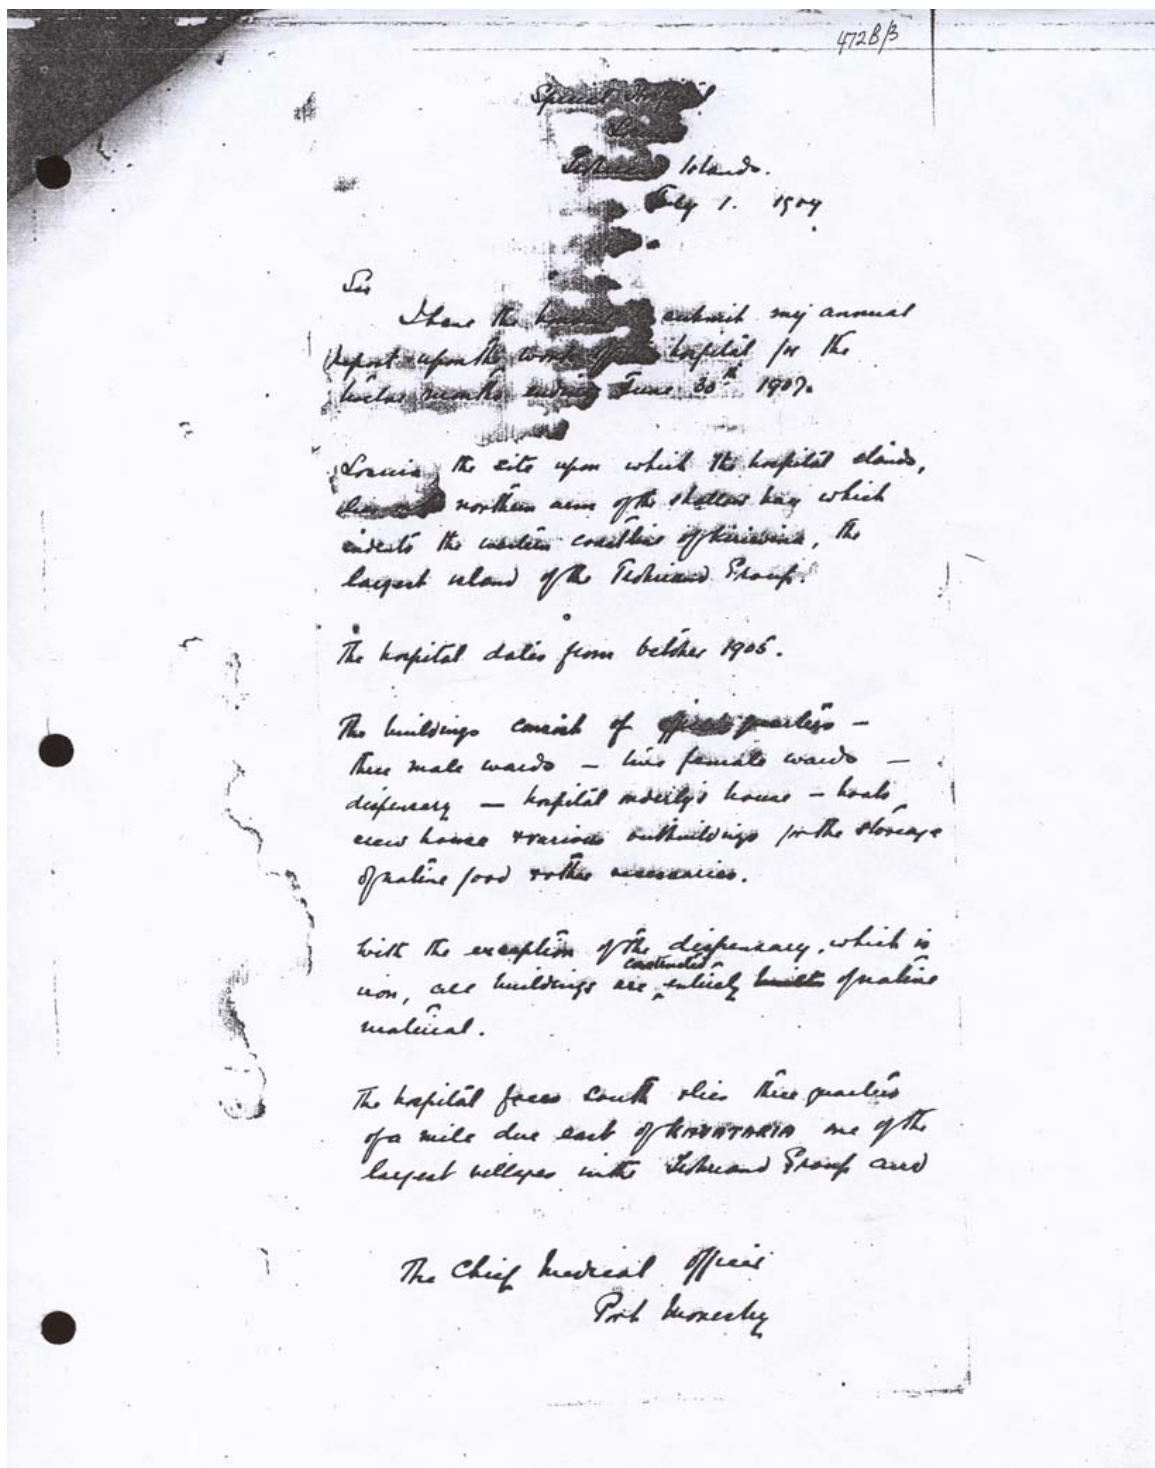 472B/3
Special Hospital
Islands.
July 1. 1907
Sir
I have the submit my annual
report upon the work hospital for the
twelve months ending June 30th 1907.
Losuia the site upon which the hospital stands,
northern arm of the shallow bay which
indents the western coastline of Kiriwina, the
largest island of the Trobriand Group.
The hospital dates from October 1905.
The buildings consist of quarters –
three male wards – two female wards –
dispensary – hospital orderly's house – boats
crew house & various outbuildings for the storage
of native food & other necessaries.
With the exception of the dispensary, which is
constructed
iron, all buildings are entirely built of native
material.
The hospital faces South & lies three quarters
of a mile due east of KAVATARIA one of the
largest villages in the Trobriand Group and
The Chief Medical Officer
Port Moresby